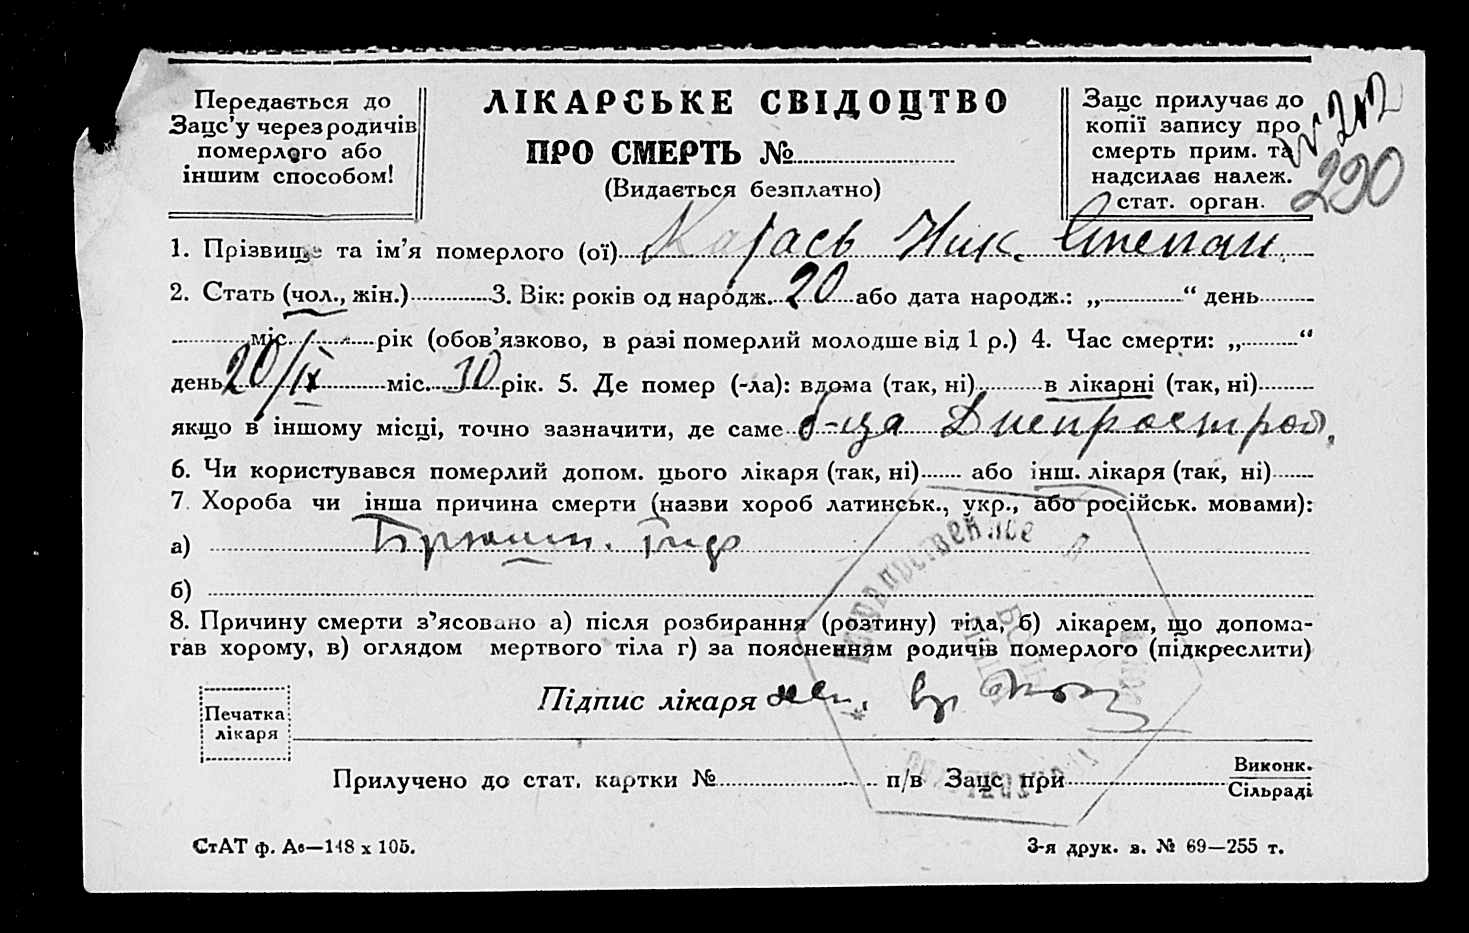 Передається до
Зацс'у через родичів
померлого або
іншим способом!
ЛІКАРСЬКЕ СВІДОЦТВО
ПРО СМЕРТЬ №
(Видається безплатно)
Зацс прилучає до
копії запису про
смерть прим. та
надсилає належ.
стат. орган.
№ 202
290
1. Прізвище та ім'я померлого (ої) Карась Ник. Степан.
2. Стать (чол., жін.) 3. Вік: років од народж. 20 або дата народж.: „ “ день
міс. рік (обов'язково, в разі померлий молодше від 1 р.) 4. Час смерти: „ “
день 20/IX міс. 30 рік. 5. Де помер (-ла): вдома (так, ні) в лікарні (так, ні)
якщо в іншому місці, точно зазначити, де саме б-ца Днепрострой,
6. Чи користувався померлий допом. цього лікаря (так, ні) або інш. лікаря (так, ні)
7. Хороба чи інша причина смерти (назви хороб латинськ., укр., або російськ. мовами):
а) Брюшн. тиф
б)
8. Причину смерти з'ясовано а) після розбирання (розтину) тіла, б) лікарем, що допома-
гав хорому, в) оглядом мертвого тіла г) за поясненням родичів померлого (підкреслити)
Печатка
лікаря
Підпис лікаря
Прилучено до стат. картки № п/в Зацс при Виконк.
Сільраді
СтАТ ф. Ав—148 х 105.
3-я друк. з. № 69—255 т.